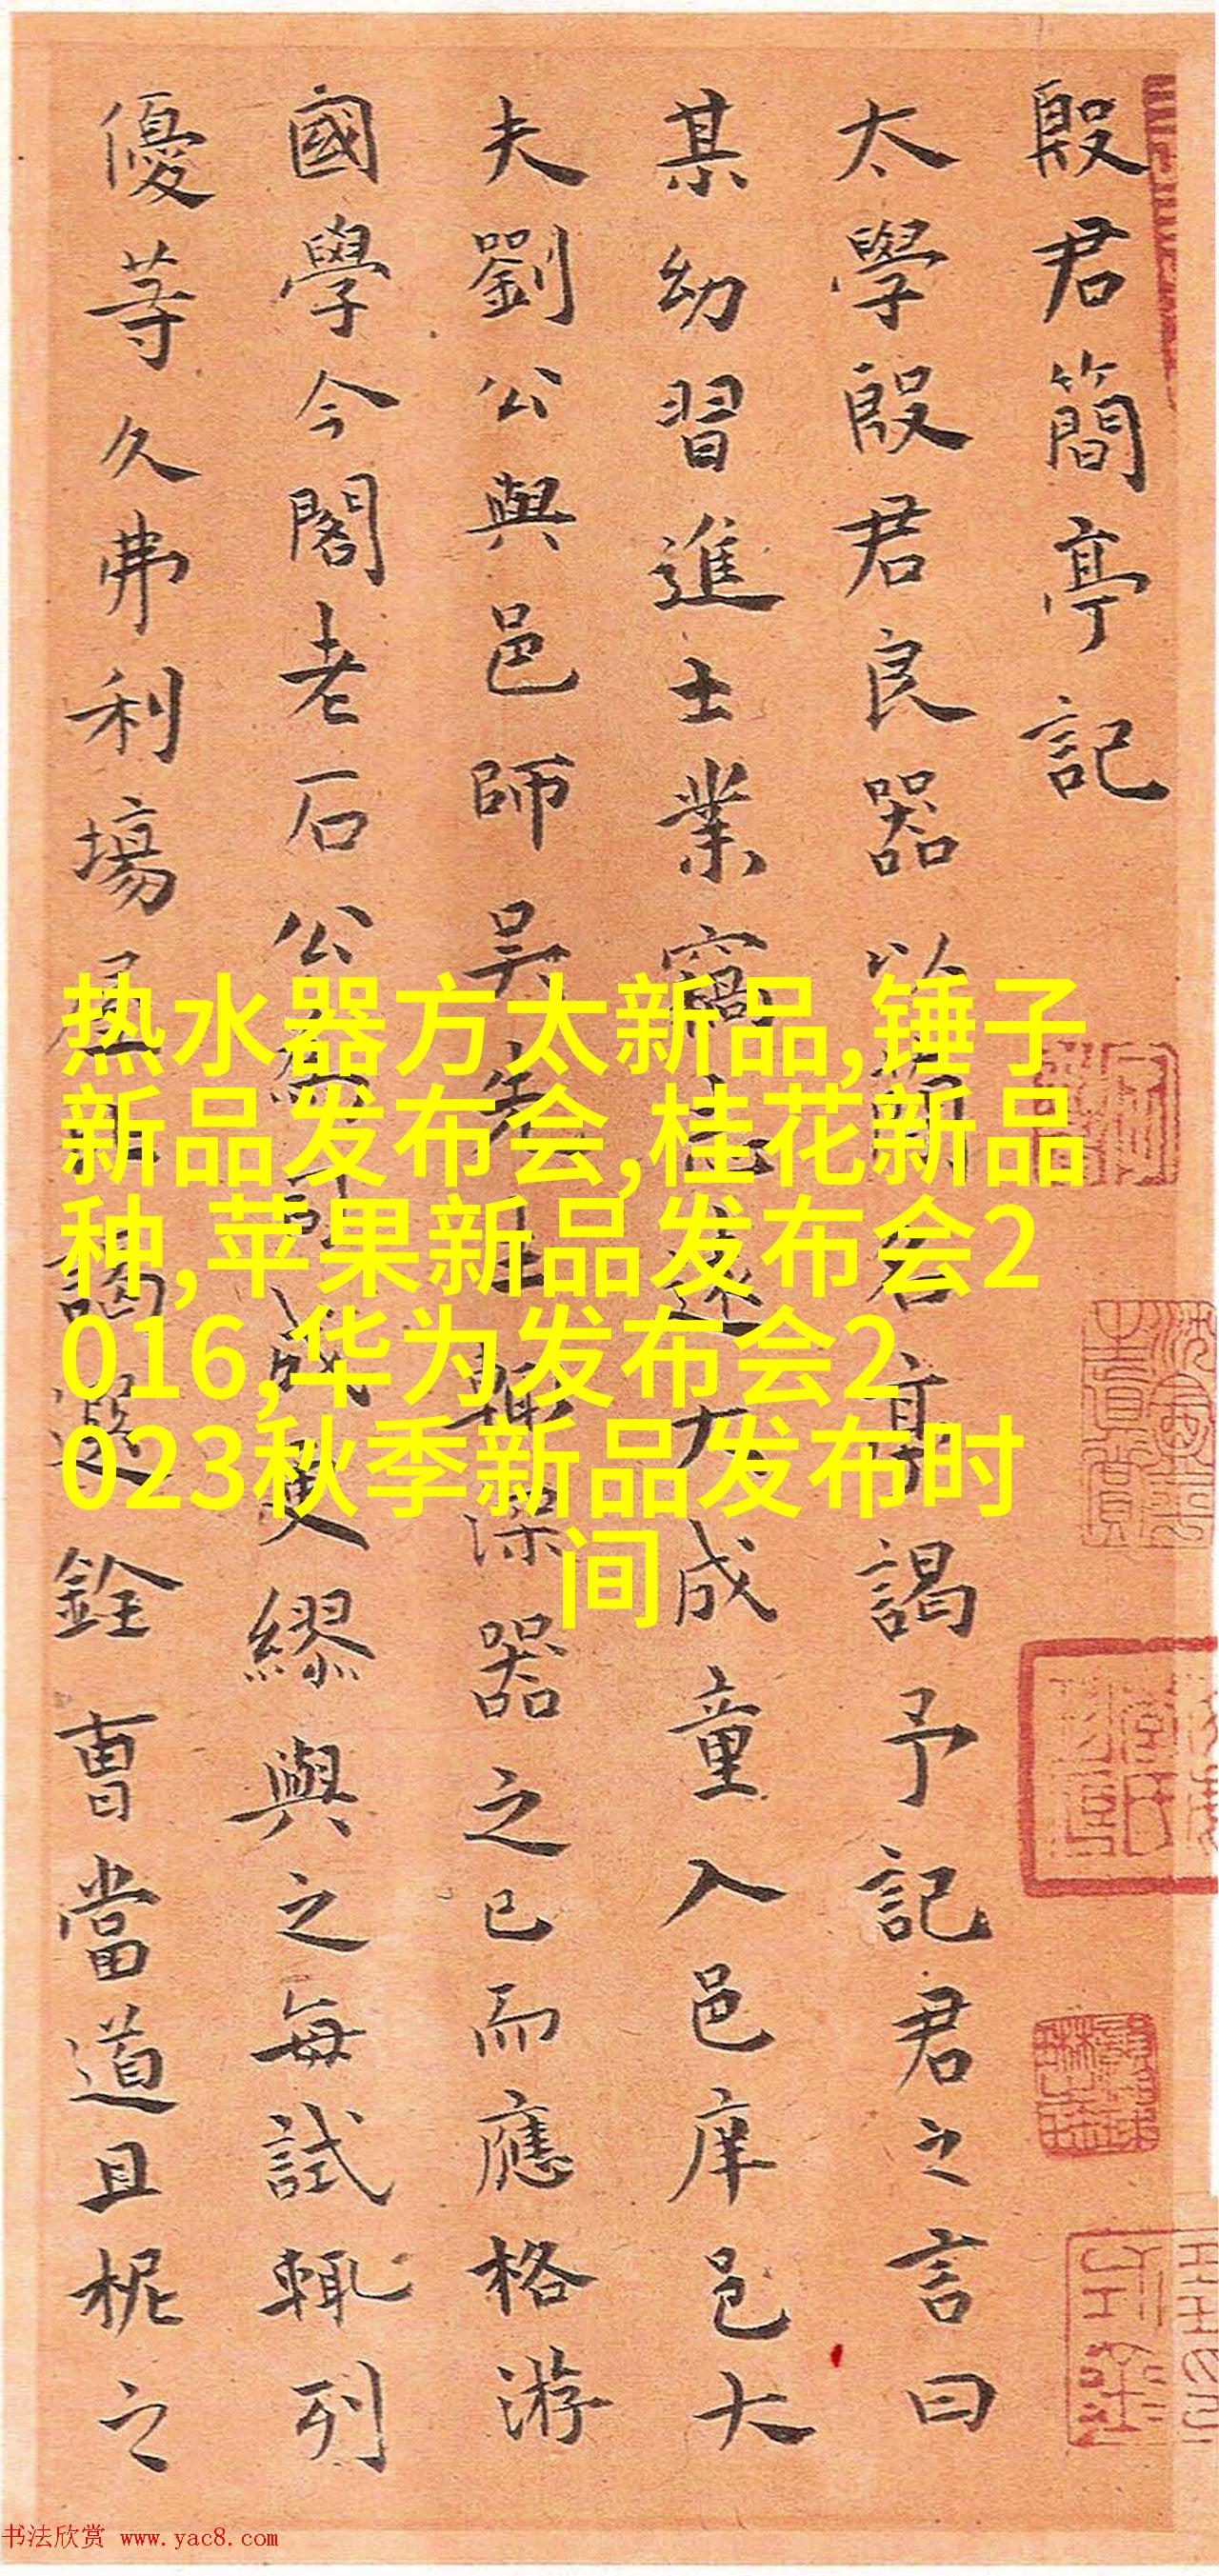 殷君簡亭記
太學殷君良器以簡名亭謁予記君之言曰
某幼習進士業竊志遠大成童入邑庠邑大
夫劉公與邑師吳先生輒深器之已而應格游
國學今閣老石公為司成更繆與之每試輒列
優等久弗利場屋謁選銓曹當道且柅之
热水器方太新品,锤子
新品发布会,桂花新品
种,苹果新品发布会2
016,华为发布会2
023秋季新品发布时
间
书法欣赏 www.yac8.com